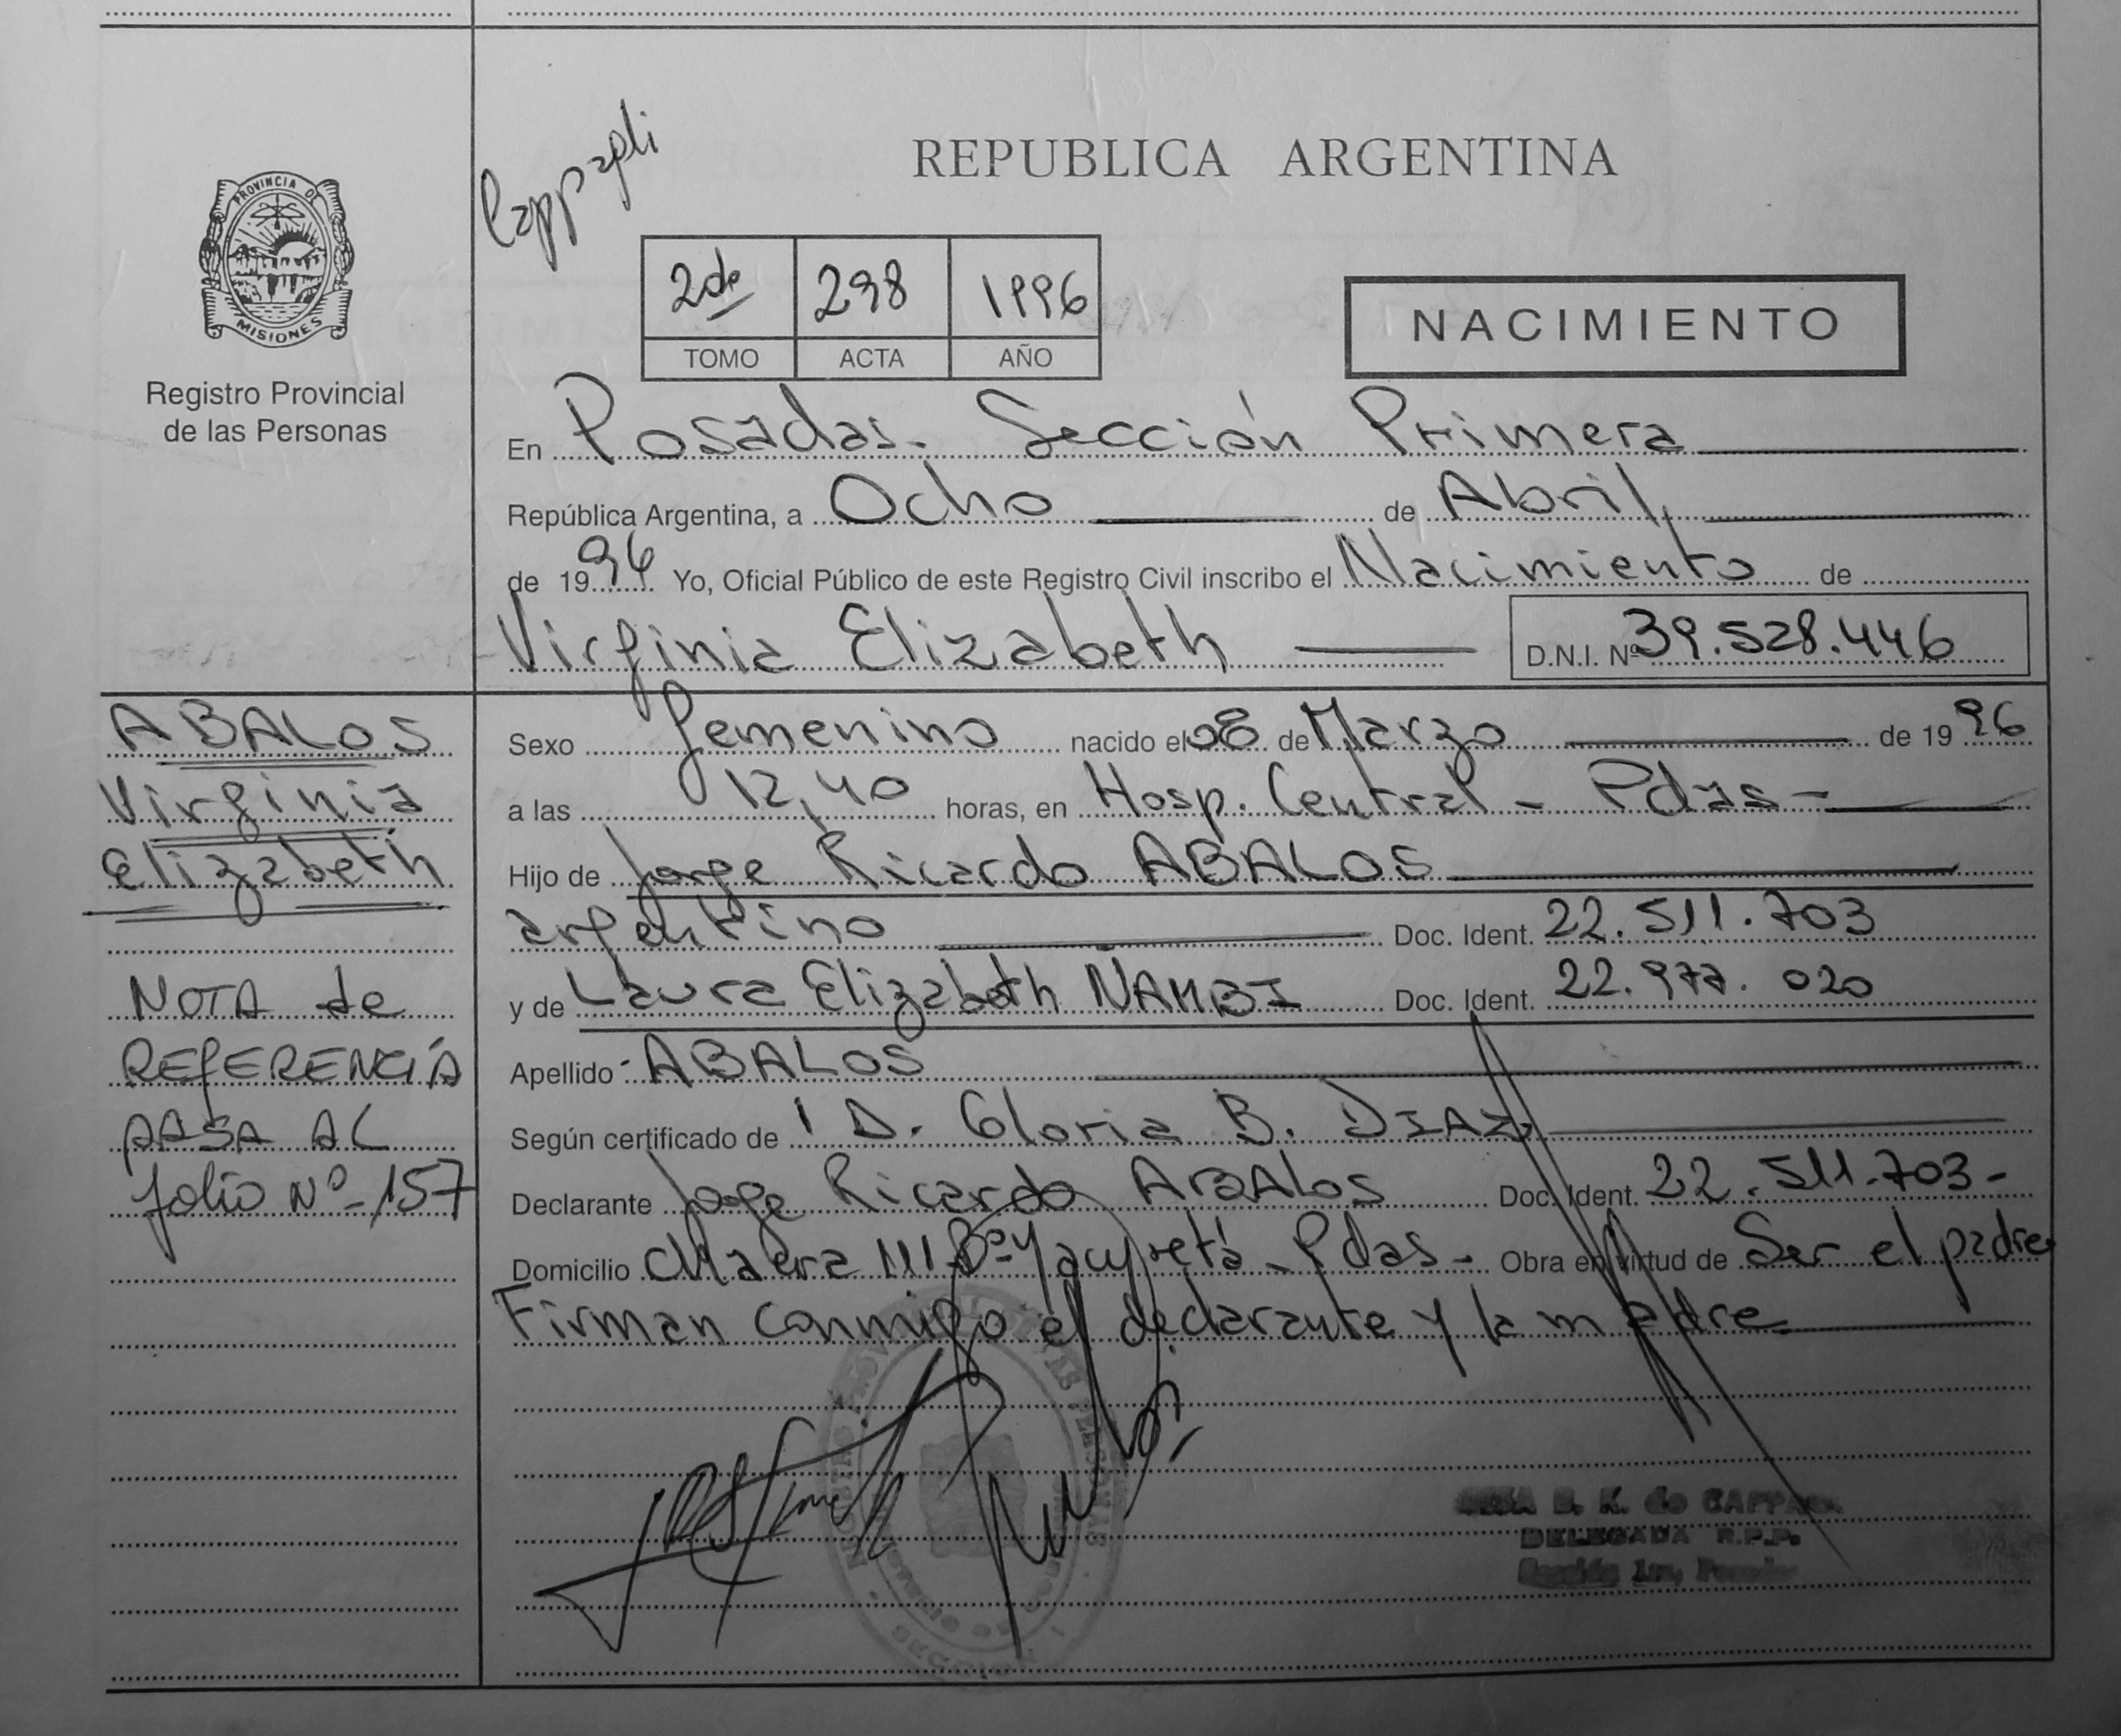 REPUBLICA ARGENTINA
PROVINCIA DE
MISIONES
Registro Provincial
de las Personas
2de 298 1996
TOMO ACTA AÑO
NACIMIENTO
En Posadas. Sección Primera
República Argentina, a Ocho de Abril,
de 1996 Yo, Oficial Público de este Registro Civil inscribo el Nacimiento de
Virginia Elizabeth D.N.I. Nº 39.528.446
ABALOS
Virginia
Elizabeth
NOTA de
REFERENCIA
PASA AL
folio Nº 157
Sexo femenino nacido el 08 de Marzo de 1996
a las 12,40 horas, en Hosp. Central - Pdas -
Hijo de Jorge Ricardo ABALOS
argentino Doc. Ident. 22.511.703
y de Laura Elizabeth ÑAMBI Doc. Ident. 22.977.020
Apellido - ABALOS
Según certificado de D. Gloria B. DIAZ
Declarante Jorge Ricardo ABALOS Doc. Ident. 22.511.703-
Domicilio Chacra 111 Bº Yacyretá - Pdas - Obra en virtud de Ser el padre
Firman conmigo el declarante y la madre
B. K. de
DELEGADA R.P.P.
Sección 1ra,